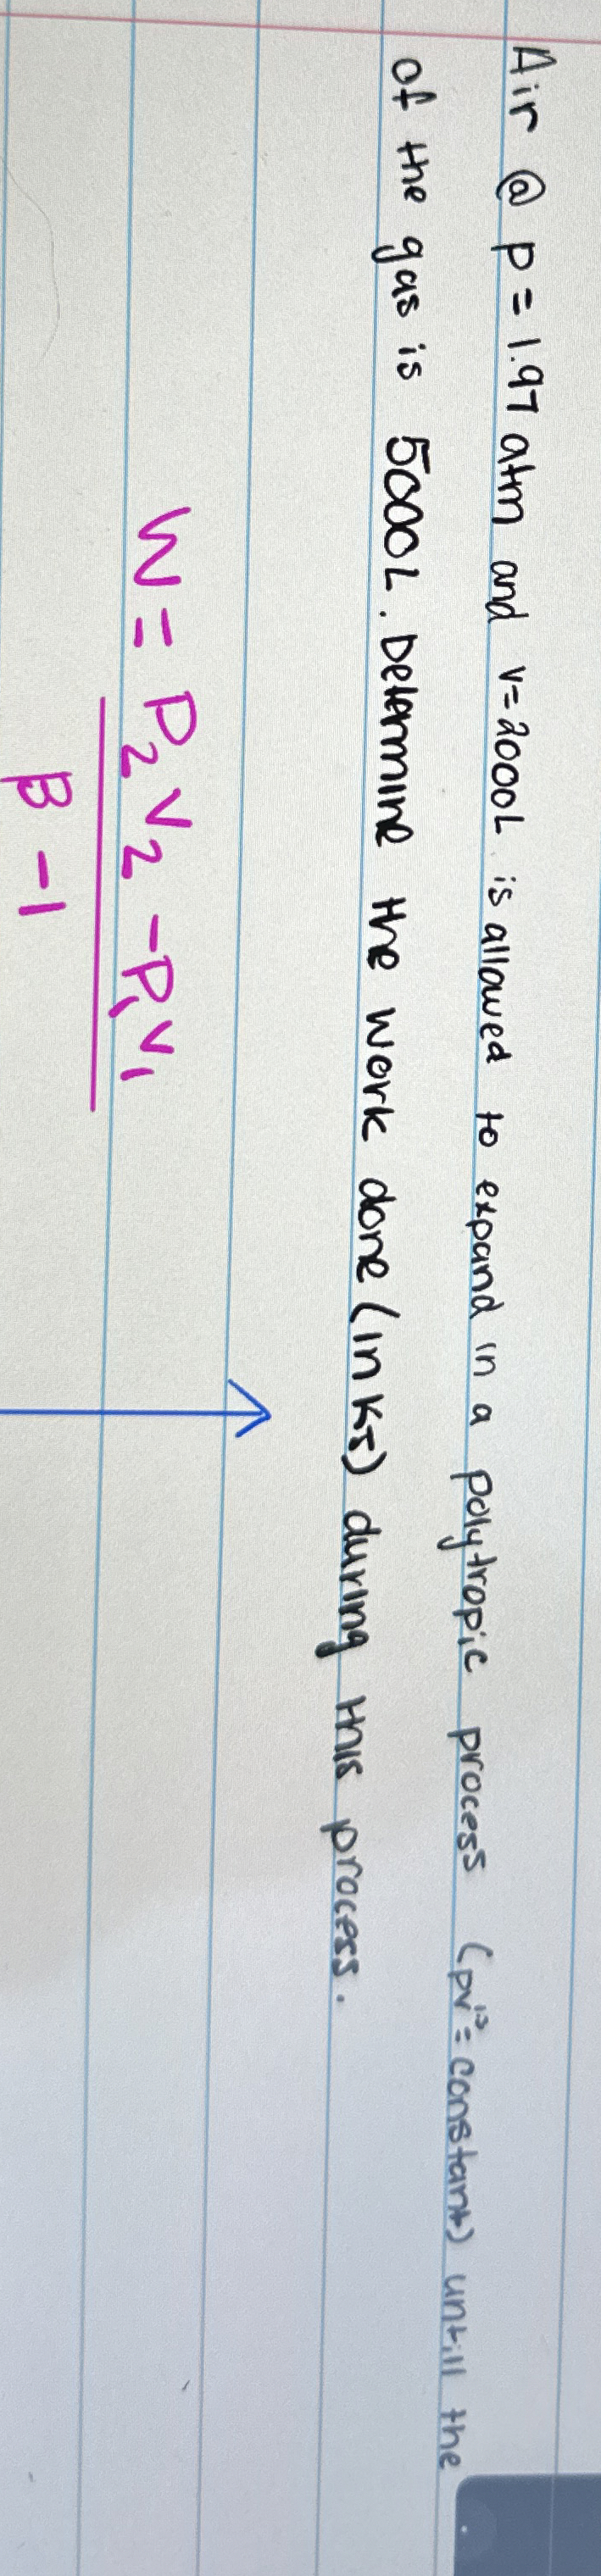 Air @ P = 1.97 atm and v=2000L is allowed to expand in a polytropic process (pv¹·³ = constant) untill the
of the gas is 5000L. Determine the work done (in KJ) during this process.
W = P₂V₂ - P₁V₁
β - 1